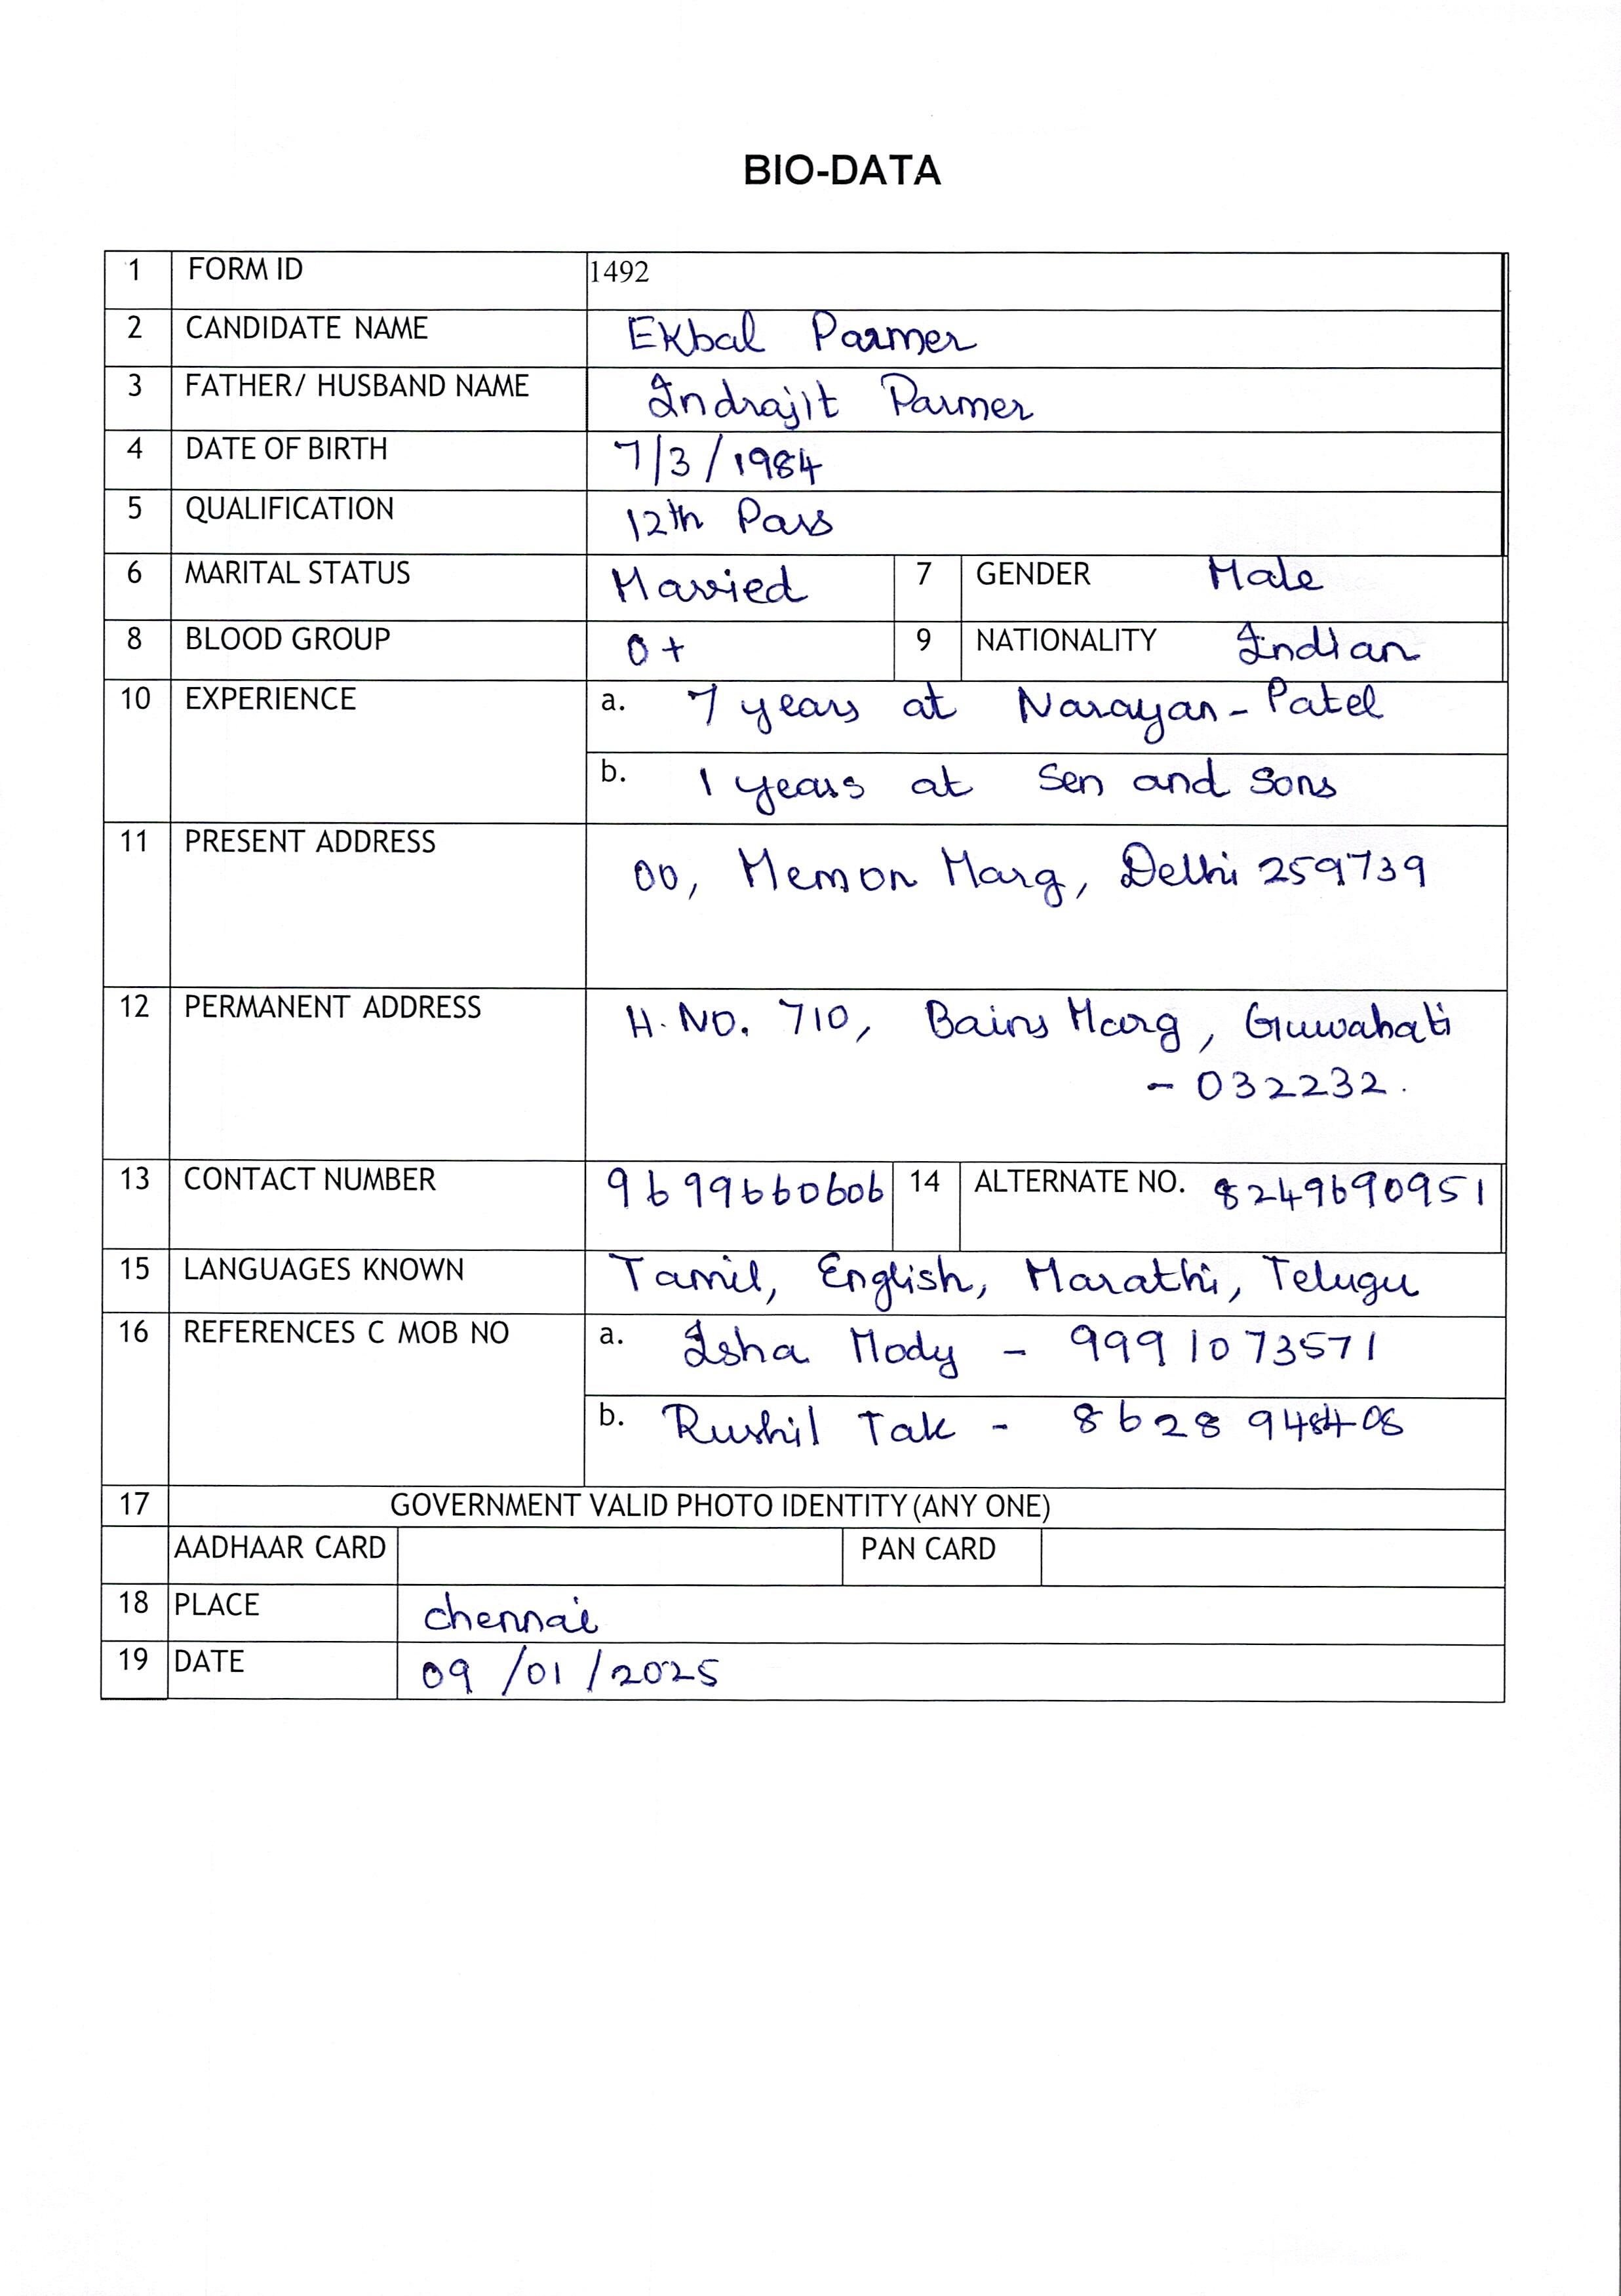 BIO-DATA
1 FORM ID 1492
2 CANDIDATE NAME Ekbal Parmer
3 FATHER/ HUSBAND NAME Indrajit Parmer
4 DATE OF BIRTH 7/3/1984
5 QUALIFICATION 12th Pass
6 MARITAL STATUS Married 7 GENDER Male
8 BLOOD GROUP O+ 9 NATIONALITY Indian
10 EXPERIENCE a. 7 years at Narayan-Patel
b. 1 years at Sen and Sons
11 PRESENT ADDRESS
00, Memon Marg, Delhi 259739
12 PERMANENT ADDRESS H.NO. 710, Bains Marg, Guwahati
- 032232.
13 CONTACT NUMBER 9699660606 14 ALTERNATE NO. 8249690951
15 LANGUAGES KNOWN Tamil, English, Marathi, Telugu
16 REFERENCES C MOB NO a. Isha Mody - 9991073571
b. Rushil Tak -
17 GOVERNMENT VALID PHOTO IDENTITY (ANY ONE)
AADHAAR CARD PAN CARD
18 PLACE chennai
19 DATE 09/01/2025